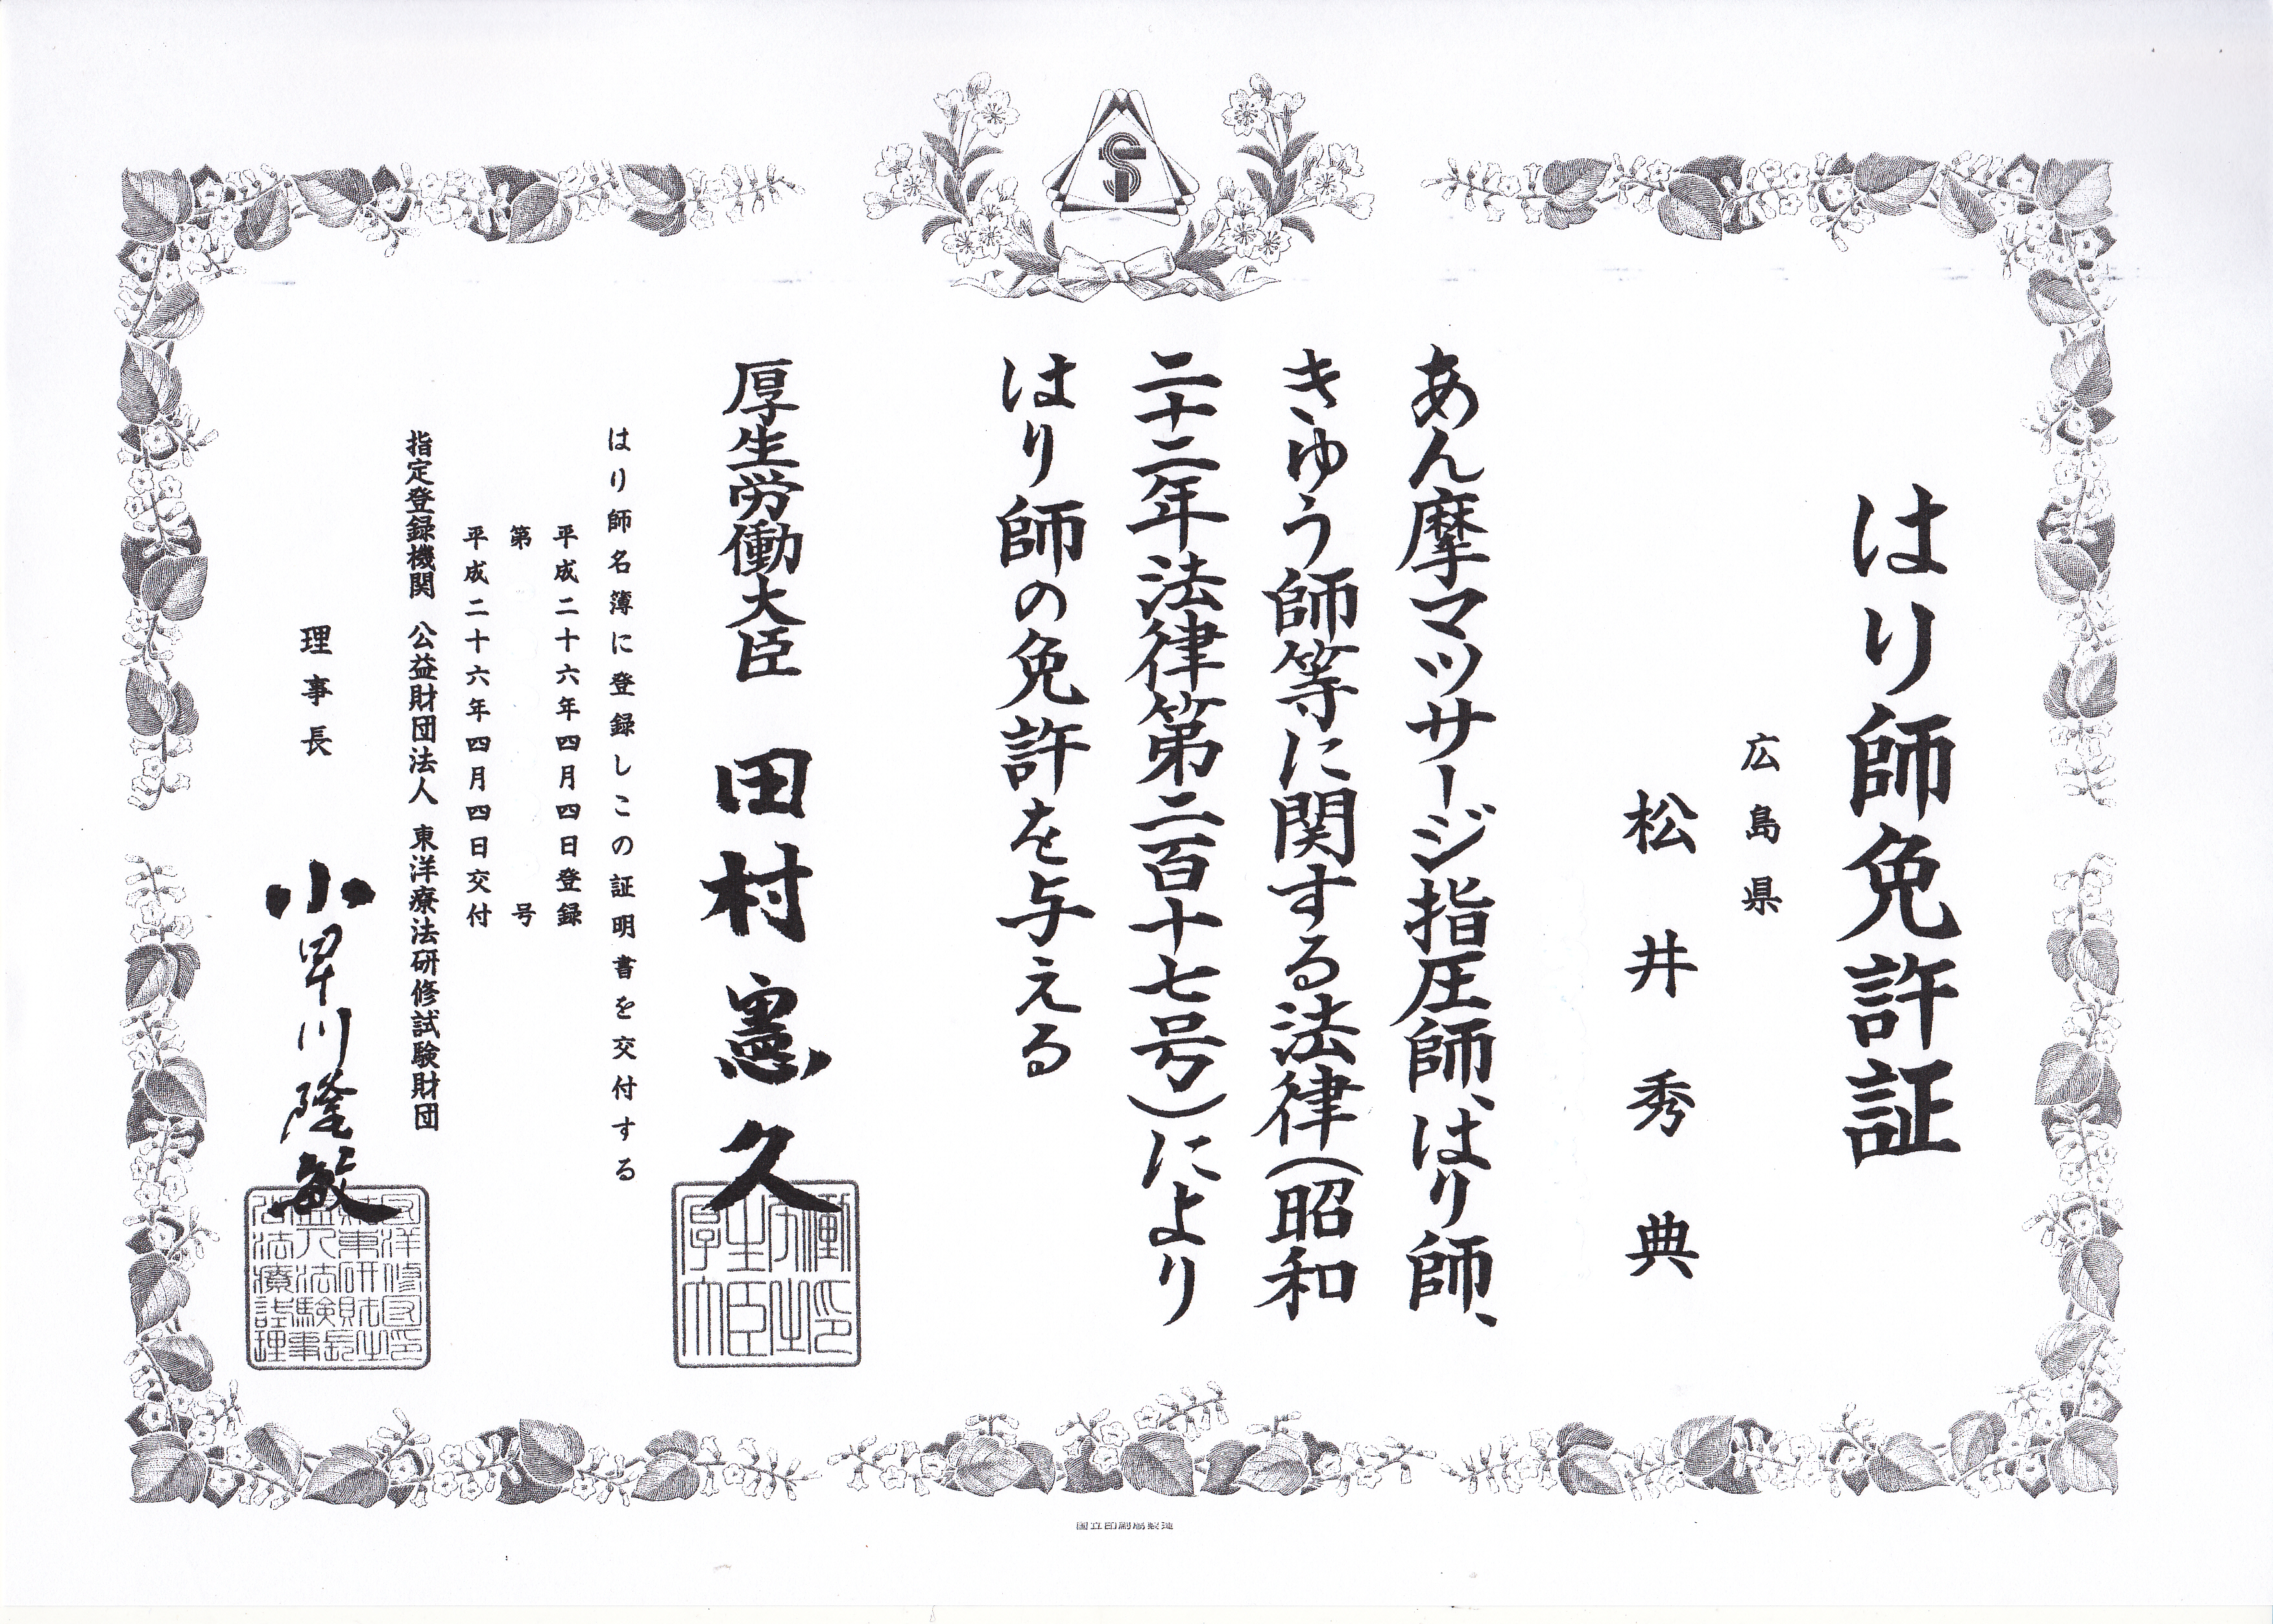 はり師免許証
広島県
松井秀典
あん摩マツサージ指圧師、はり師、
きゆう師等に関する法律(昭和
二十二年法律第二百十七号)により
はり師の免許を与える
厚生労働大臣 田村憲久
はり師名簿に登録しこの証明書を交付する
平成二十六年四月四日登録
第 号
平成二十六年四月四日交付
指定登録機関 公益財団法人 東洋療法研修試験財団
理事長 小早川隆敏
国立印刷局製造